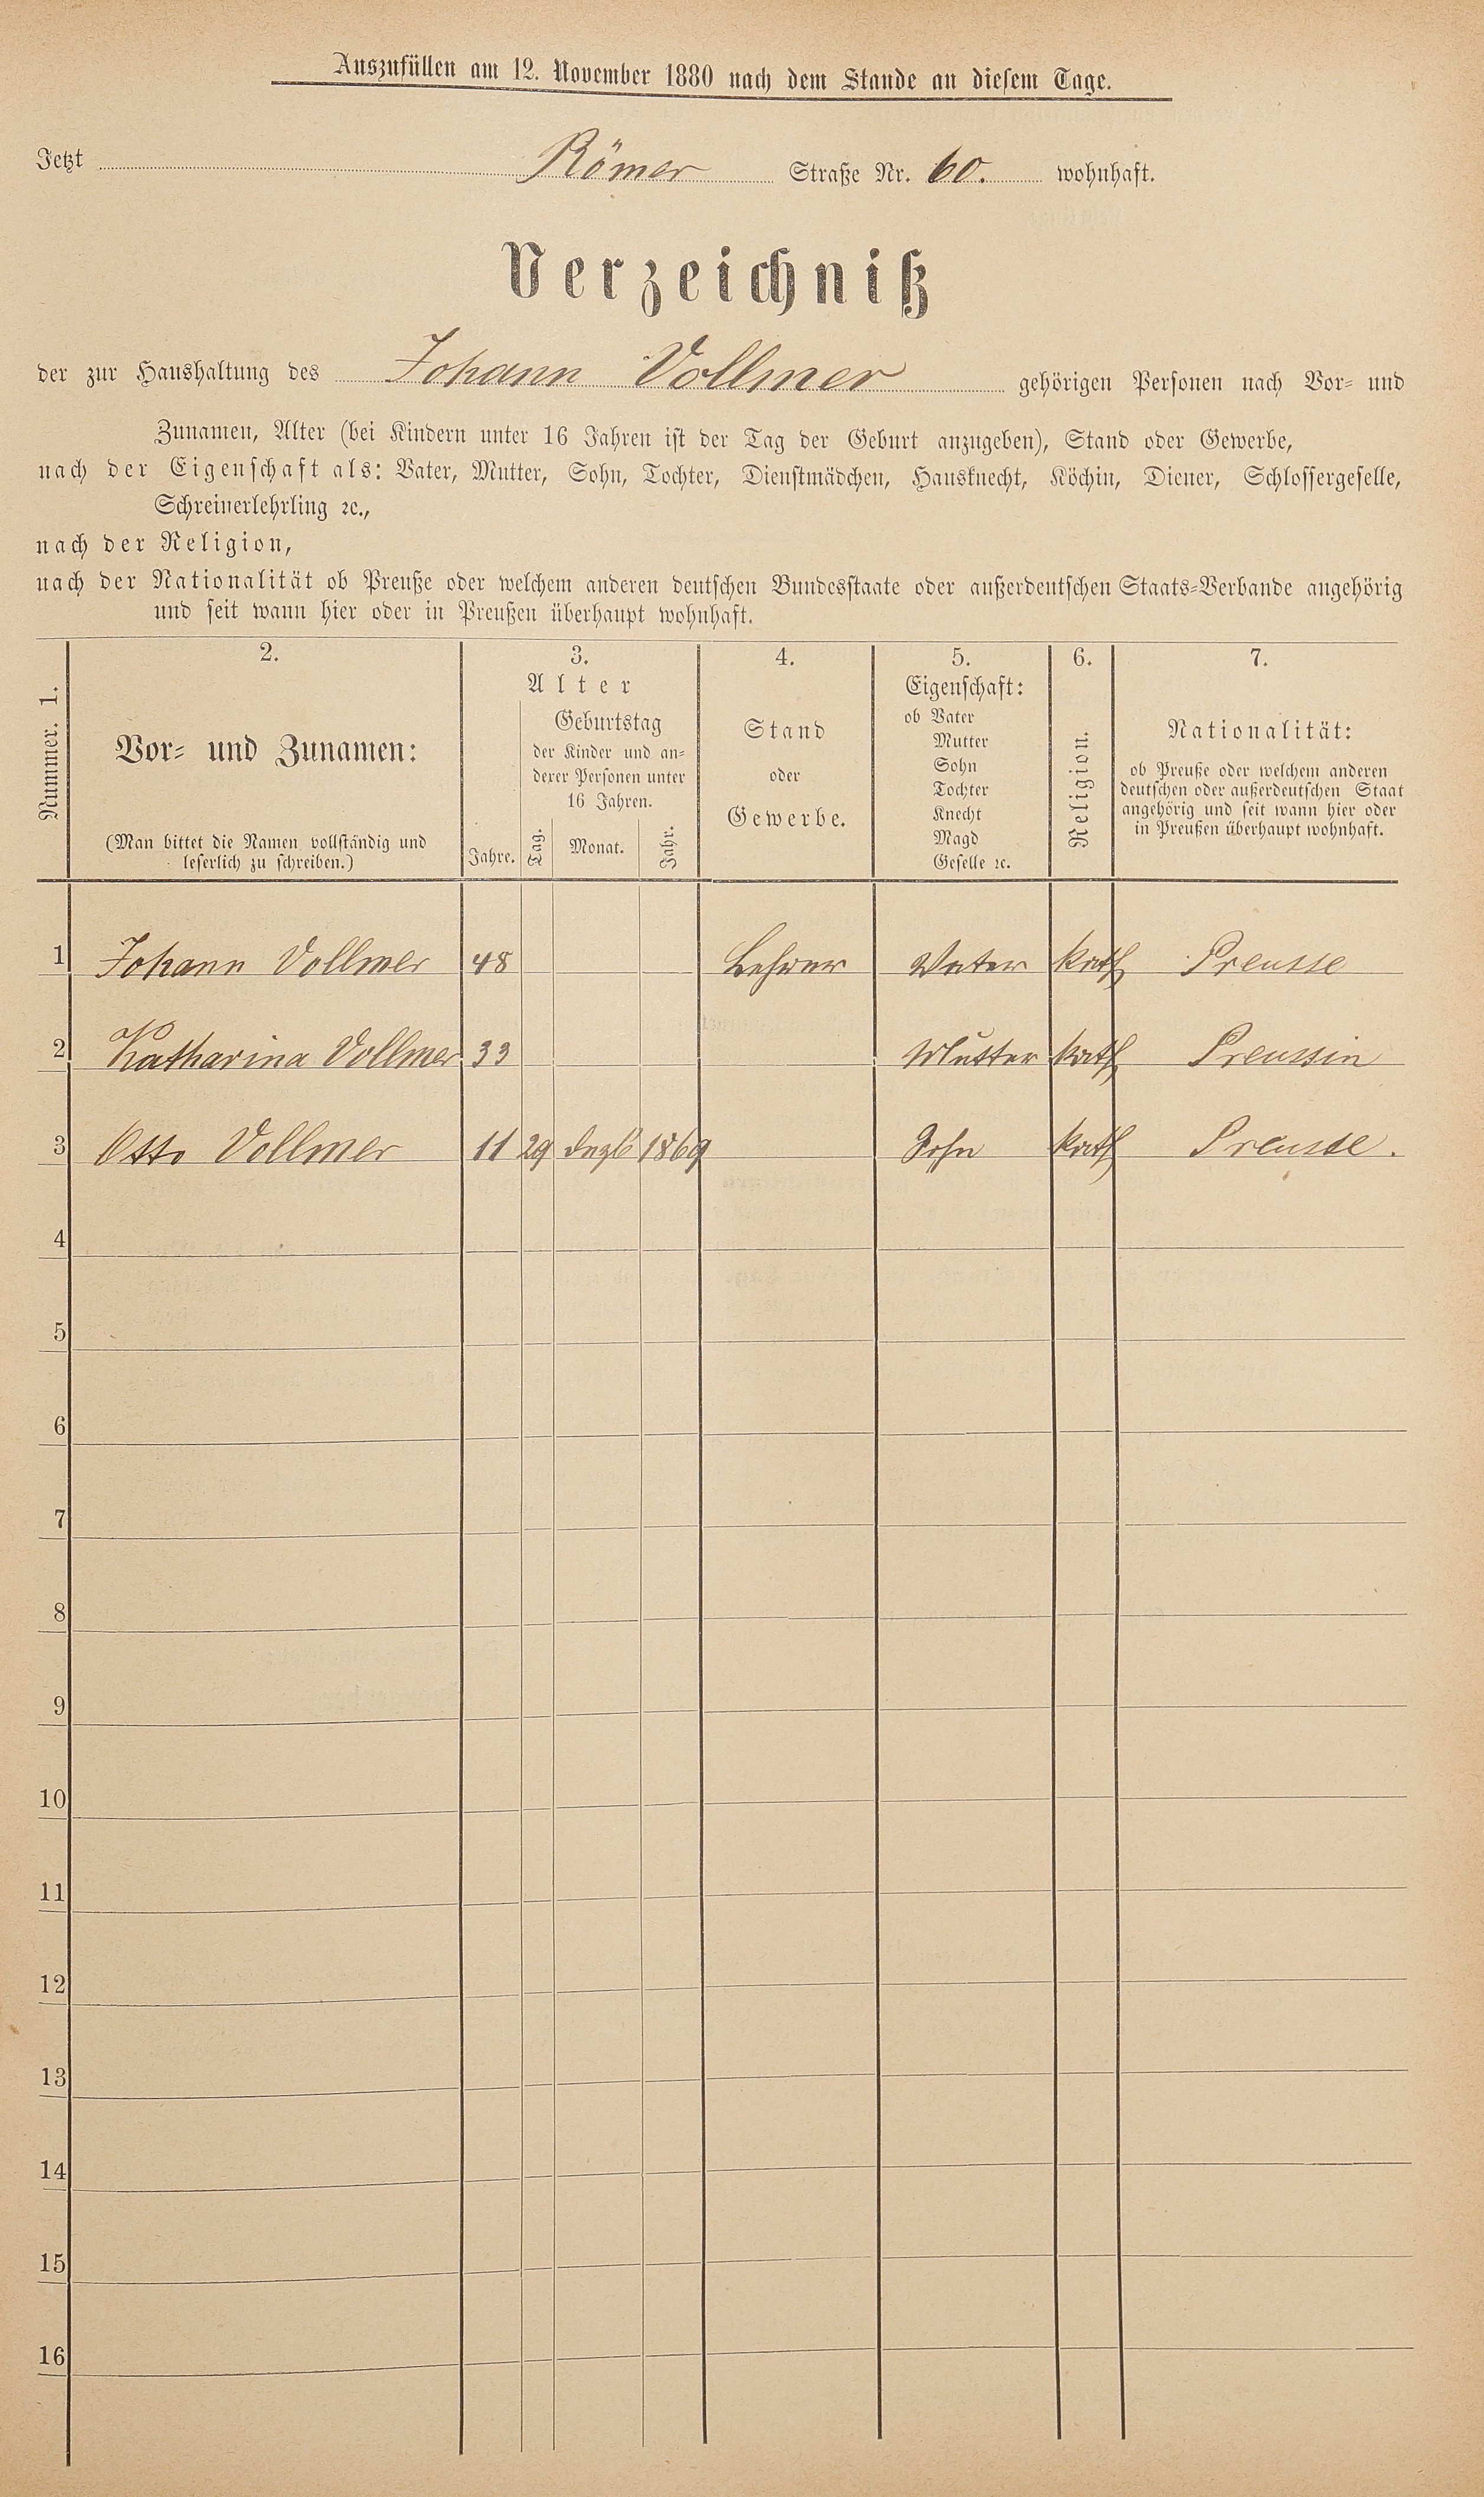 Auszufüllen am 12. November 1880 nach dem Stande an diesem Tage.
Jetzt Römer Straße Nr. 60. wohnhaft.
Verzeichniß
der zur Haushaltung des Johann Vollmer gehörigen Personen nach Vor- und
Zunamen, Alter (bei Kindern unter 16 Jahren ist der Tag der Geburt anzugeben), Stand oder Gewerbe,
nach der Eigenschaft als: Vater, Mutter, Sohn, Tochter, Dienstmädchen, Hausknecht, Köchin, Diener, Schlossergeselle,
Schreinerlehrling ꝛc.,
nach der Religion,
nach der Nationalität ob Preuße oder welchem anderen deutschen Bundesstaate oder außerdeutschen Staats-Verbande angehörig
und seit wann hier oder in Preußen überhaupt wohnhaft.
Nummer. 1.
2.
Vor- und Zunamen:
(Man bittet die Namen vollständig und
leserlich zu schreiben.)
3.
Alter
Jahre.
Geburtstag
der Kinder und an-
derer Personen unter
16 Jahren.
Tag. Monat. Jahr.
4.
Stand
oder
Gewerbe.
5.
Eigenschaft:
ob Vater
Mutter
Sohn
Tochter
Knecht
Magd
Geselle ꝛc.
6.
Religion.
7.
Nationalität:
ob Preuße oder welchem anderen
deutschen oder außerdeutschen Staat
angehörig und seit wann hier oder
in Preußen überhaupt wohnhaft.
1 Johann Vollmer 48 Lehrer Vater kath Preusse
2 Katharina Vollmer 33 Mutter kath Preussin
3 Otto Vollmer 11 29 Dezb 1869 Sohn kath Preusse.
4
5
6
7
8
9
10
11
12
13
14
15
16